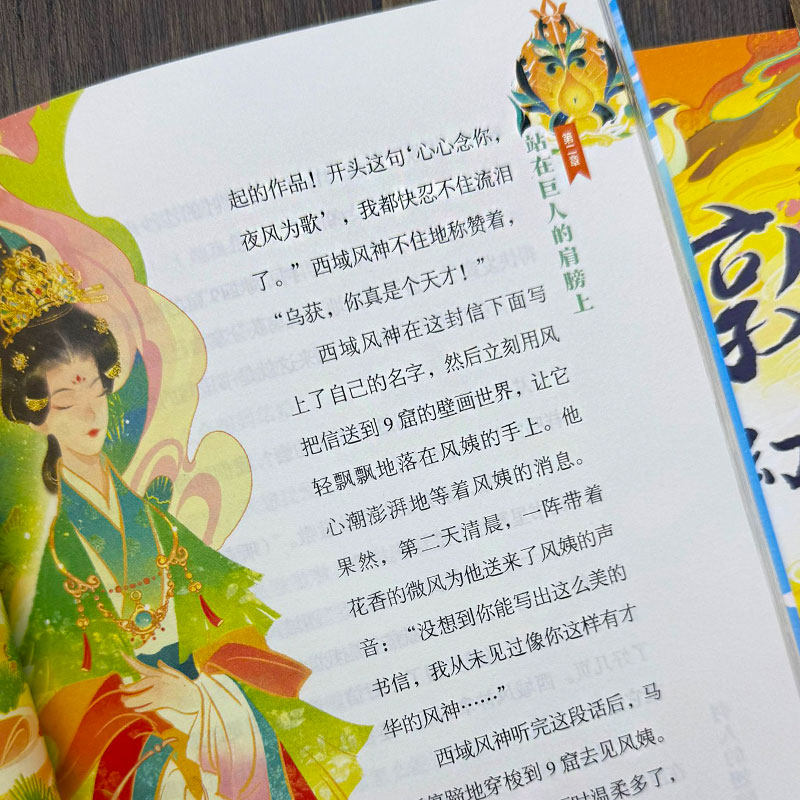 第二章
站在巨人的肩膀上
起的作品！开头这句‘心心念你，
夜风为歌’，我都快忍不住流泪
了。”西域风神不住地称赞着，
“乌获，你真是个天才！”
西域风神在这封信下面写
上了自己的名字，然后立刻用风
把信送到 9 窟的壁画世界，让它
轻飘飘地落在风姨的手上。他
心潮澎湃地等着风姨的消息。
果然，第二天清晨，一阵带着
花香的微风为他送来了风姨的声
音：“没想到你能写出这么美的
书信，我从未见过像你这样有才
华的风神……”
西域风神听完这段话后，马
蹄地穿梭到 9 窟去见风姨。
时温柔多了，